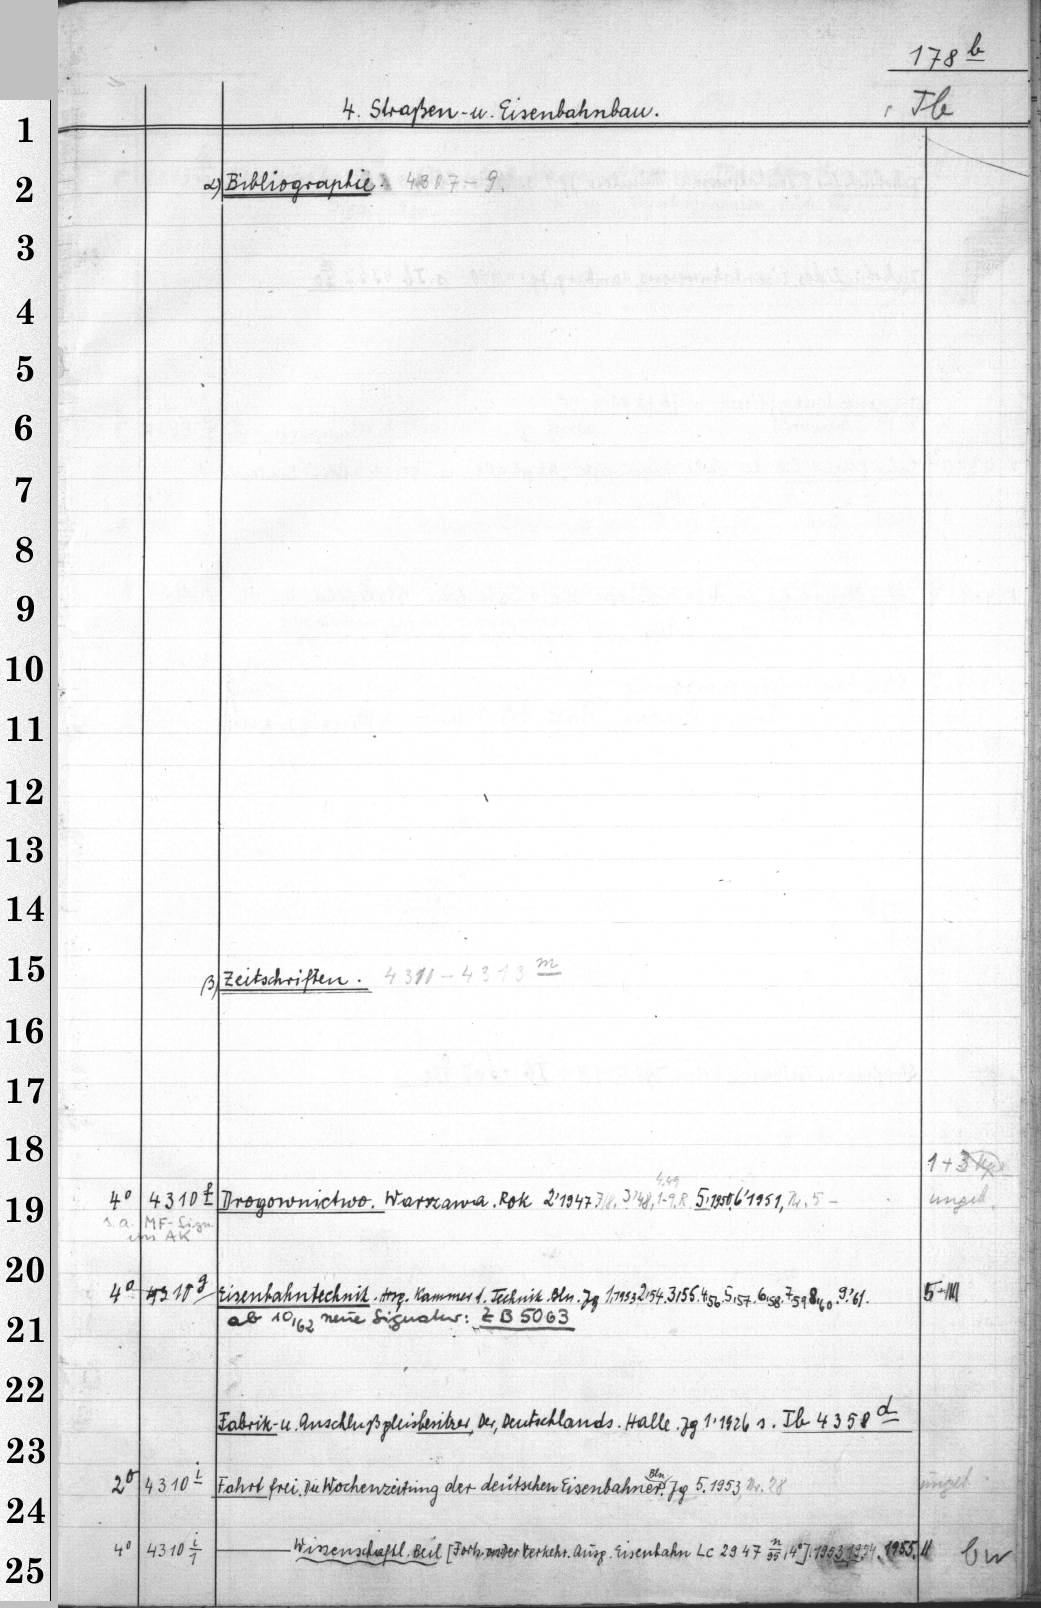 178 b
4. Straßen- u. Eisenbahnbau. Ib
1
α) Bibliographie: 4307-9.
2
3
4
5
6
7
8
9
10
11
12
13
14
15
β) Zeitschriften. 4311-4313 m
16
17
18
1+3
4° 4310 f Drogownictwo. Warszawa. Rok 2'1947 3'48, 1-9. R. 5'1950, 6'1951, Nr. 5 - ungeb.
19
s. a. MF-Sign. im AK
20
4° 4310 g Eisenbahntechnik. Hrsg. Kammer d. Technik. Bln. Jg 1.1953 2'54. 3'55. 4'56. 5'57. 6'58. 7'59 8'60. 9'61. 5+III
ab 10,'62 neue Signatur: ZB 5063
21
22
Fabrik- u. Anschlußgleisbesitzer, Der, Deutschlands. Halle. Jg 1'1926 s. Ib 4358 d
23
2° 4310 i Fahrt frei. Die Wochenzeitung der deutschen Eisenbahner. Bln Jg 5. 1953, Nr. 28 ungeb.
24
4° 4310 i/1 Wissenschaftl. Beil [Forts. Verkehr. Ausg. Eisenbahn Lc 2947 n/95, 4°]. 1953 1954. 1955. II bw
25